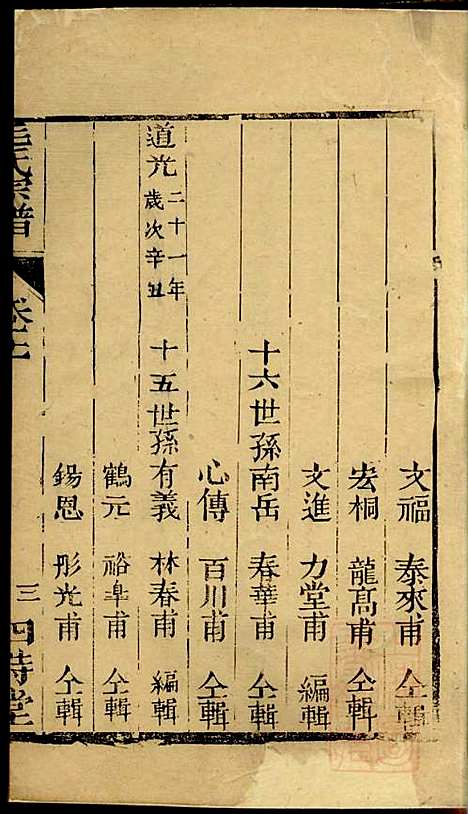 文福 泰來甫 仝輯
宏桐 龍髙甫 仝輯
文進 力堂甫 編輯
十六世孫南岳 春華甫 仝輯
心傳 百川甫 仝輯
道光二十一年歲次辛丑 十五世孫有義 林春甫 編輯
鶴元 裕臯甫 仝輯
錫恩 彤光甫 仝輯
氏宗譜 卷 三